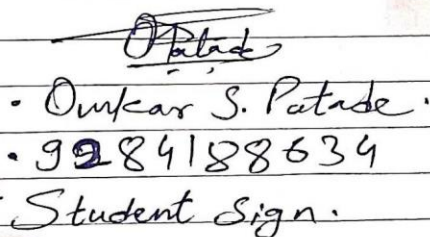 OPatade
. Omkar S. Patade.
. 9284188634
Student Sign.